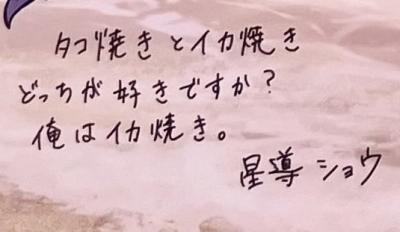 タコ焼きとイカ焼き
どっちが好きですか?
俺はイカ焼き。
星導ショウ